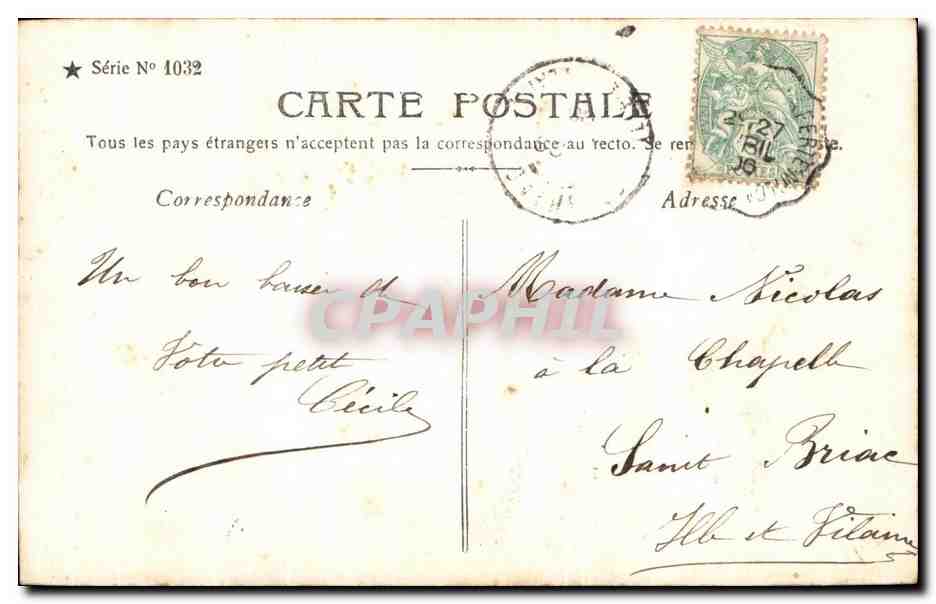 ★ Série Nº 1032
CARTE POSTALE
Tous les pays étrangers n'acceptent pas la correspondance au recto. Se ren
Correspondance
Adresse
27
RIL
06
Un bon baiser de
Votre petit
Cécile
Madame Nicolas
à la Chapelle
Saint Briac
Ille et Vilaine
CPAPHIL